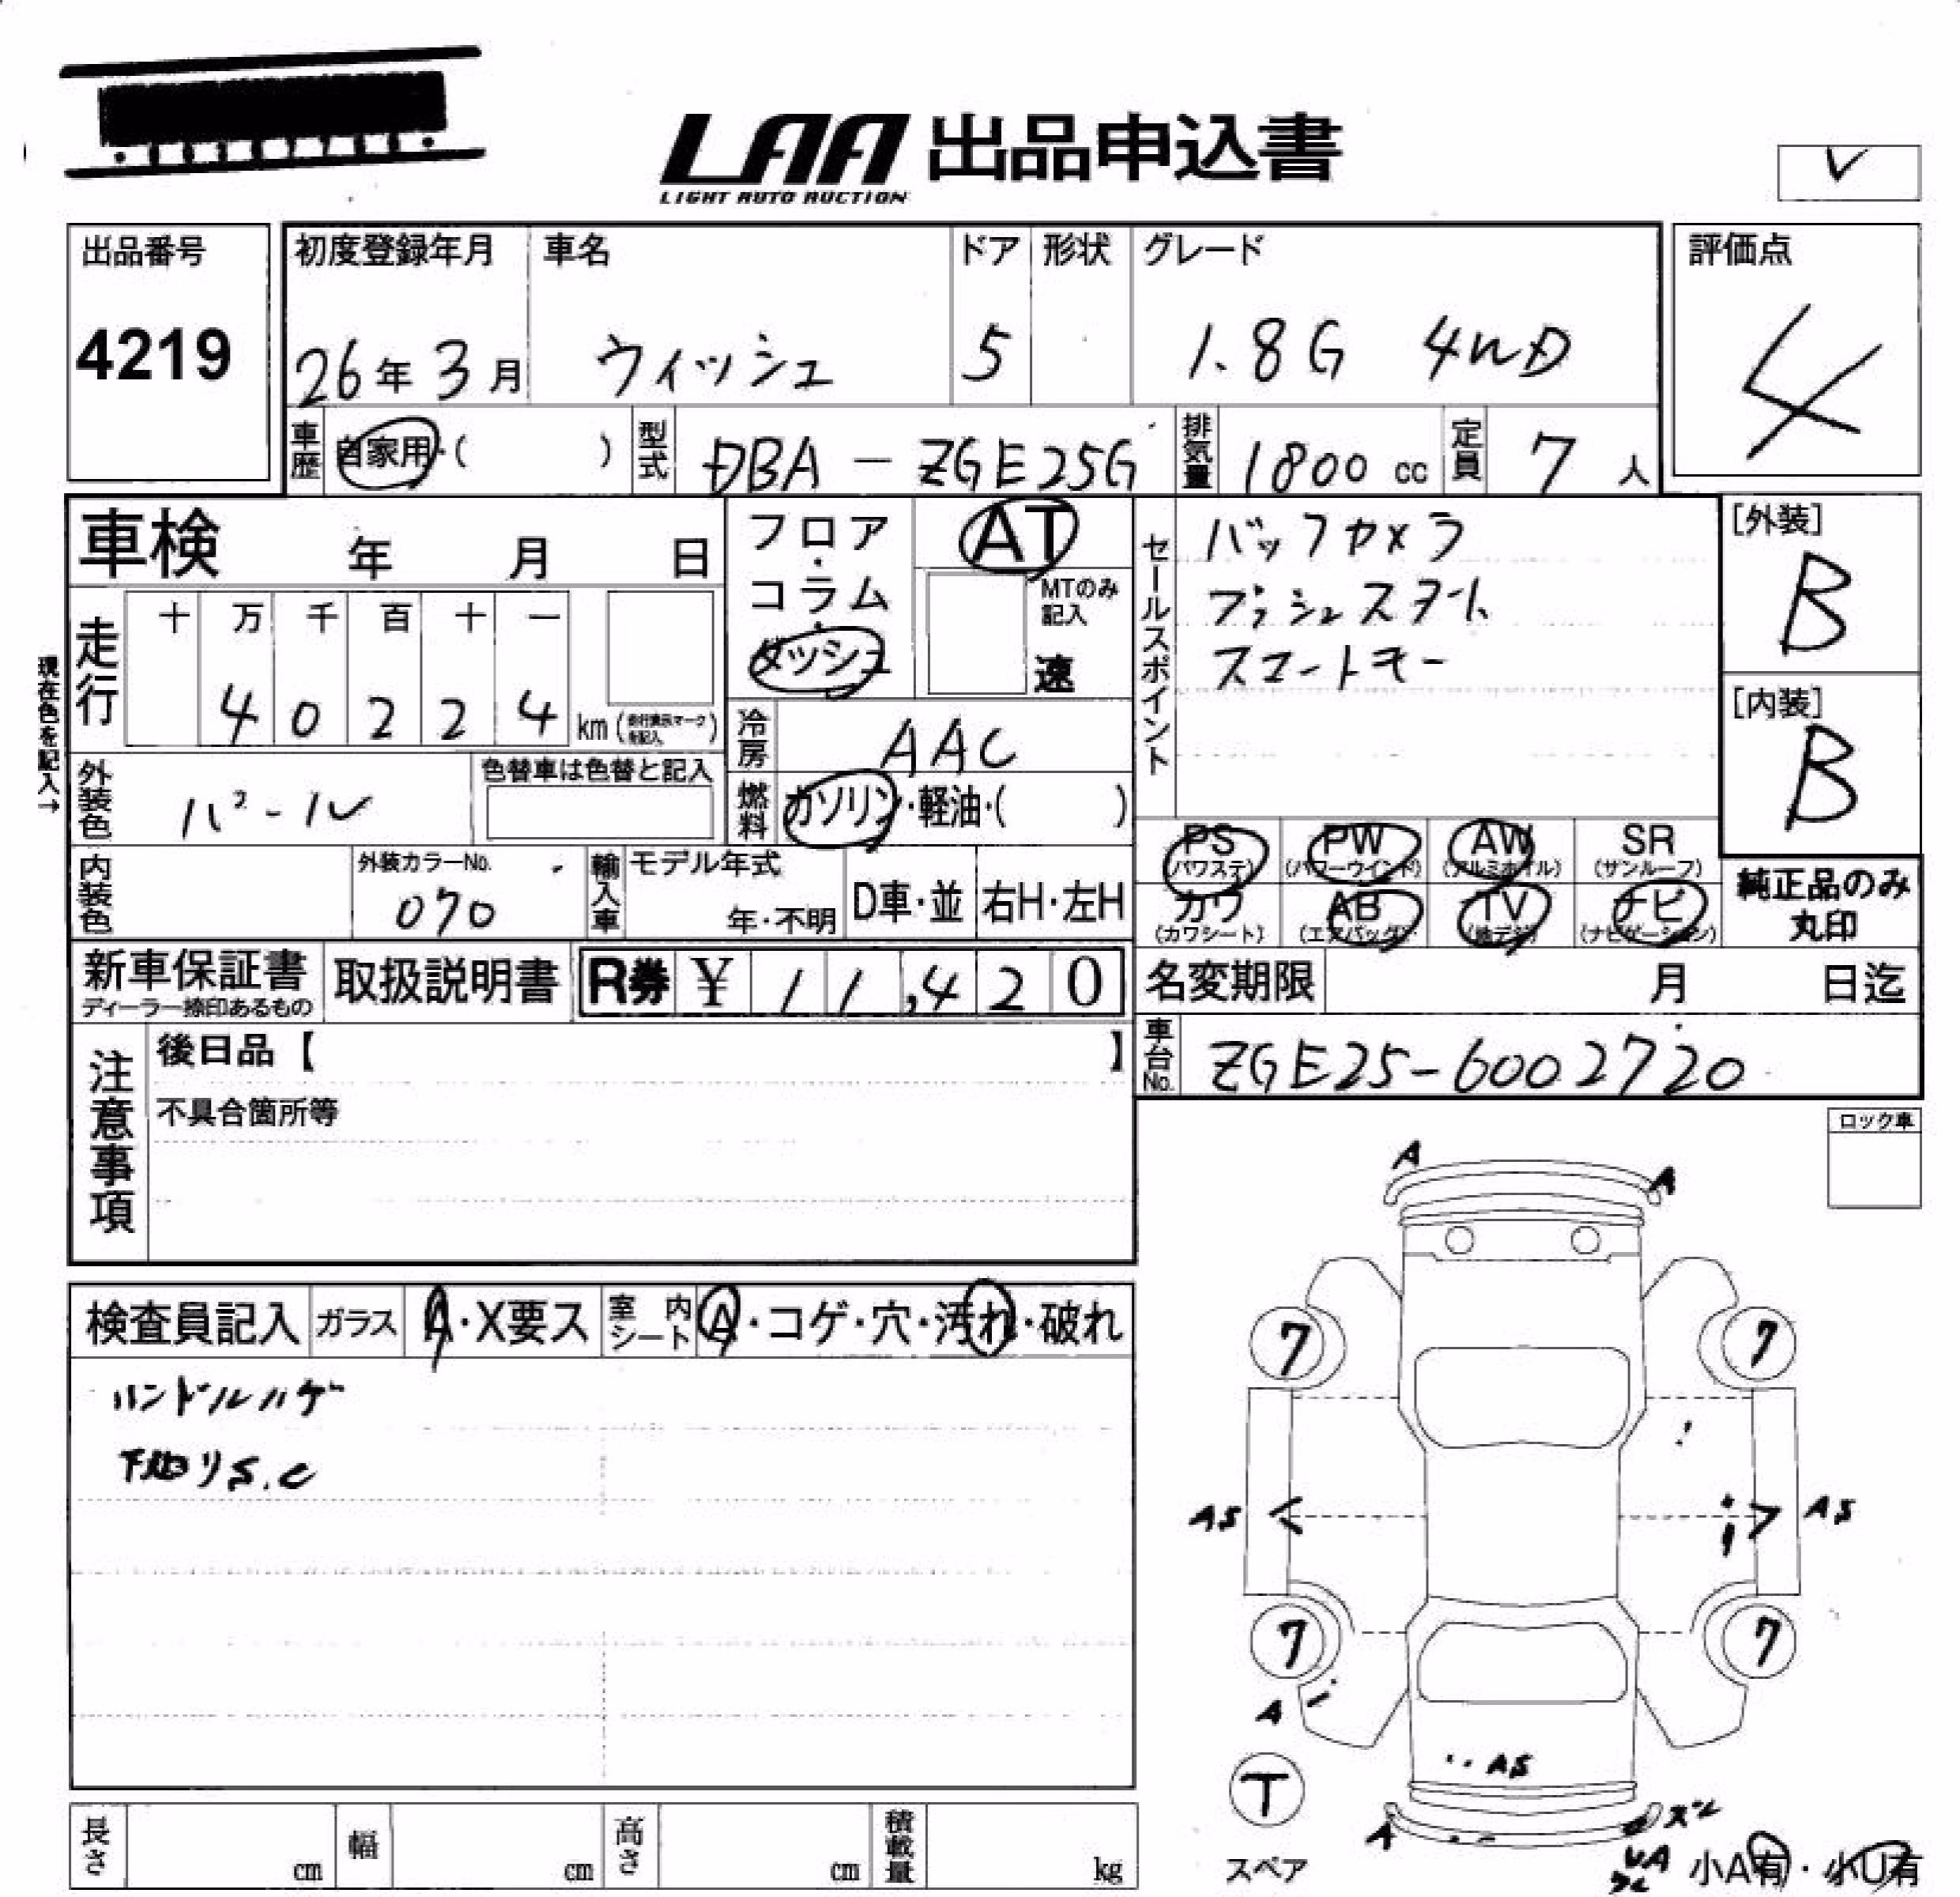 LAA 出品申込書
LIGHT AUTO AUCTION
出品番号
4219
初度登録年月 車名 ドア 形状 グレード
26年3月 ウィッシュ 5 1.8G 4WD
評価点
4
車歴 自家用・( ) 型式 DBA-ZGE25G 排気量 1800cc 定員 7人
車検 年 月 日
フロア・コラム・ダッシュ
AT
MTのみ記入
速
セールスポイント
バックカメラ
プッシュスタート
スマートキー
[外装]
B
[内装]
B
現在色を記入→
走行 十 万 千 百 十 一
4 0 2 2 4 km (走行表示マークを記入)
冷房 AAC
外装色 パール
色替車は色替と記入
燃料 ガソリン・軽油・( )
内装色
外装カラーNo.
070
輸入車 モデル年式
年・不明
D車・並 右H・左H
PS PW AW SR
(パワステ) (パワーウインド) (アルミホイル) (サンルーフ)
カワ AB TV ナビ
(カワシート) (エアバッグ) (地デジ) (ナビゲーション)
純正品のみ
丸印
新車保証書
ディーラー捺印あるもの
取扱説明書
R券 ¥ 11,420
名変期限 月 日迄
車台No. ZGE25-6002720
注意事項
後日品【 】
不具合箇所等
ロック車
検査員記入 ガラス A・X要ス 室内シート A・コゲ・穴・汚れ・破れ
ハンドルハゲ
下廻りS.C
A
A
7
7
AS
AS
7
7
A
AS
T
スペア
A
スレ
UA
小A有・小U有
長さ cm 幅 cm 高さ cm 積載量 kg